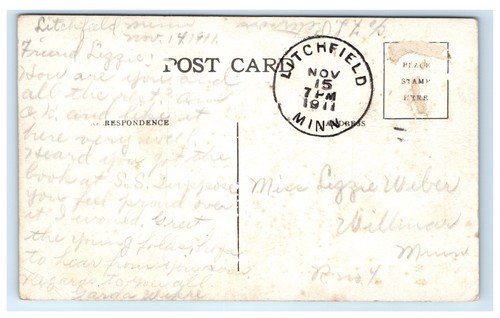 Litchfield Minn
Nov. 14 1911.
Friend Lizzie!
How are you and
all the rest? am
O.K. and like it
here very well.
Heard you got the
book at S.S. I suppose
you feel proud over
it I would. Greet
the young folks, hope
to hear from you soon
Regards to you all
POST CARD
RESPONDENCE
ADDRESS
LITCHFIELD
NOV
15
7 PM
1911
MINN.
PLACE
STAMP
HERE
Miss Lizzie Weber
Willmar
Minn